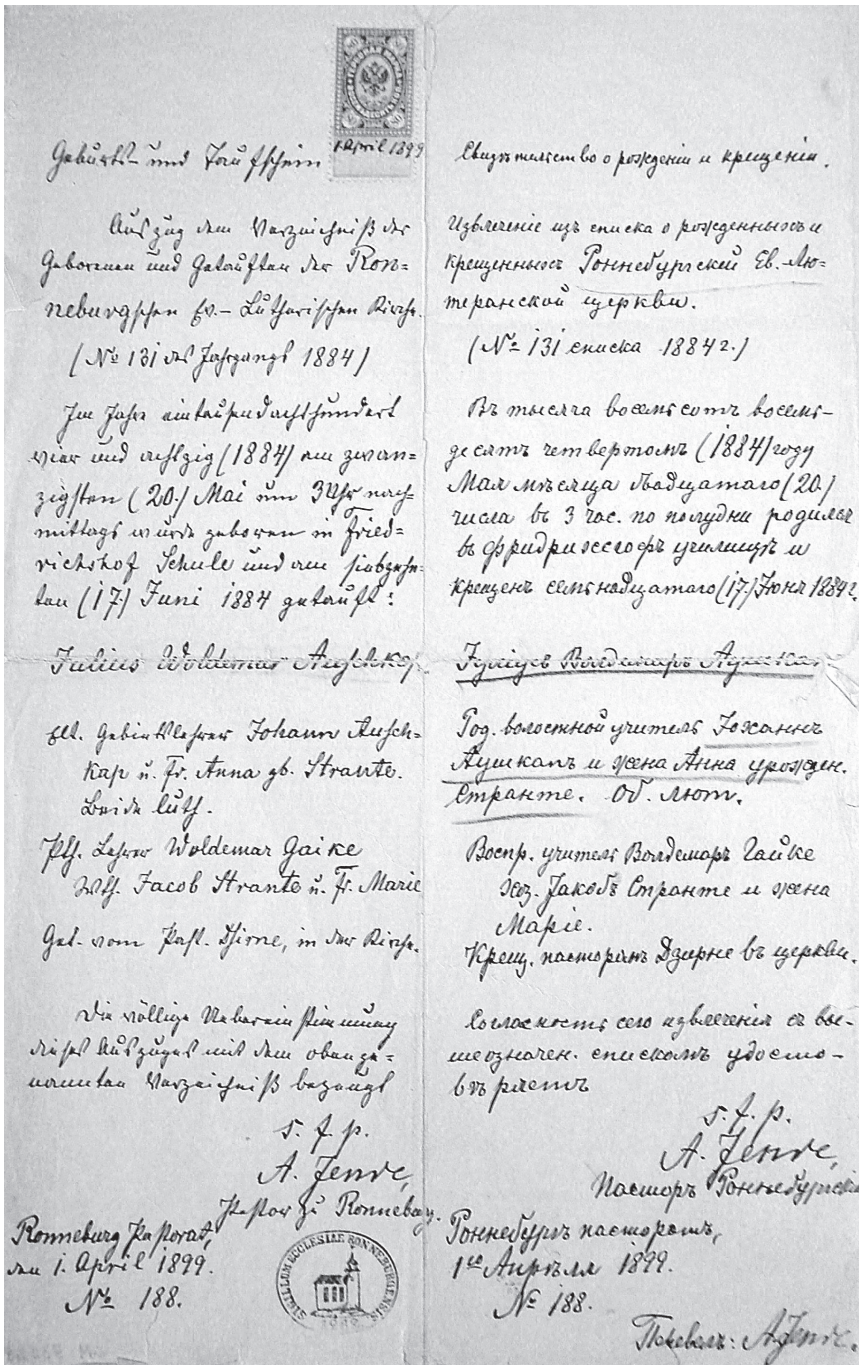 1. April 1899
Geburts- und Taufschein
Auszug dem Verzeichniß der
Geborenen und Getauften der Ron-
neburgschen Ev.- Lutherischen Kirche.
(№ 131 des Jahrgangs 1884)
Im Jahre eintausendachthundert
vier und achtzig (1884) am zwan-
zigsten (20.) Mai um 3 Uhr nach-
mittags wurde geboren in Fried-
richshof Schule und am siebzehn-
ten (17.) Juni 1884 getauft:
Julius Woldemar Auschkap
Elt. Gebietslehrer Johann Ausch-
kap u. Fr. Anna gb. Strante.
Beide luth.
Pth. Lehrer Woldemar Gaike
Wth. Jacob Strante u. Fr. Marie
Get. vom Past. Dsirne, in der Kirche.
Die völlige Uebereinstimmung
dieses Auszuges mit dem obenge-
nannten Verzeichniß bezeugt
s. f. p.
A. Jende,
Pastor zu Ronneburg.
Ronneburg Pastorat,
den 1. April 1899.
№ 188.
SIGILLUM ECCLESIAE RONNEBURGENSIS
Свидѣтельство о рожденіи и крещеніи.
Извлеченіе изъ списка о рожденныхъ и
крещенныхъ Роннебургской Ев. Лю-
теранской церкви.
(№ 131 списка 1884 г.)
Въ тысяча восемьсотъ восемь-
десятъ четвертомъ (1884) году
Мая мѣсяца двадцатаго (20.)
числа въ 3 час. по полудни родился
въ Фридрихсгофъ училищѣ и
крещенъ семнадцатаго (17.) Юня 1884 г.
Јуліусъ Волдемаръ Аушкап
Род. волостной учитель Јоханнъ
Аушкапъ и жена Анна урожден.
Странте. Об. лют.
Воспр. учитель Волдемаръ Гайке
хоз. Јакобъ Странте и жена
Маріе.
Крещ. пасторомъ Дзирне въ церкви.
Согласность сего извлеченія съ вы-
шеозначен. спискомъ удосто-
вѣряетъ
s. f. p.
A. Jende,
Пасторъ Роннебургскій
Роннебургъ пасторатъ,
1го Апрѣля 1899.
№ 188.
A. Jende.